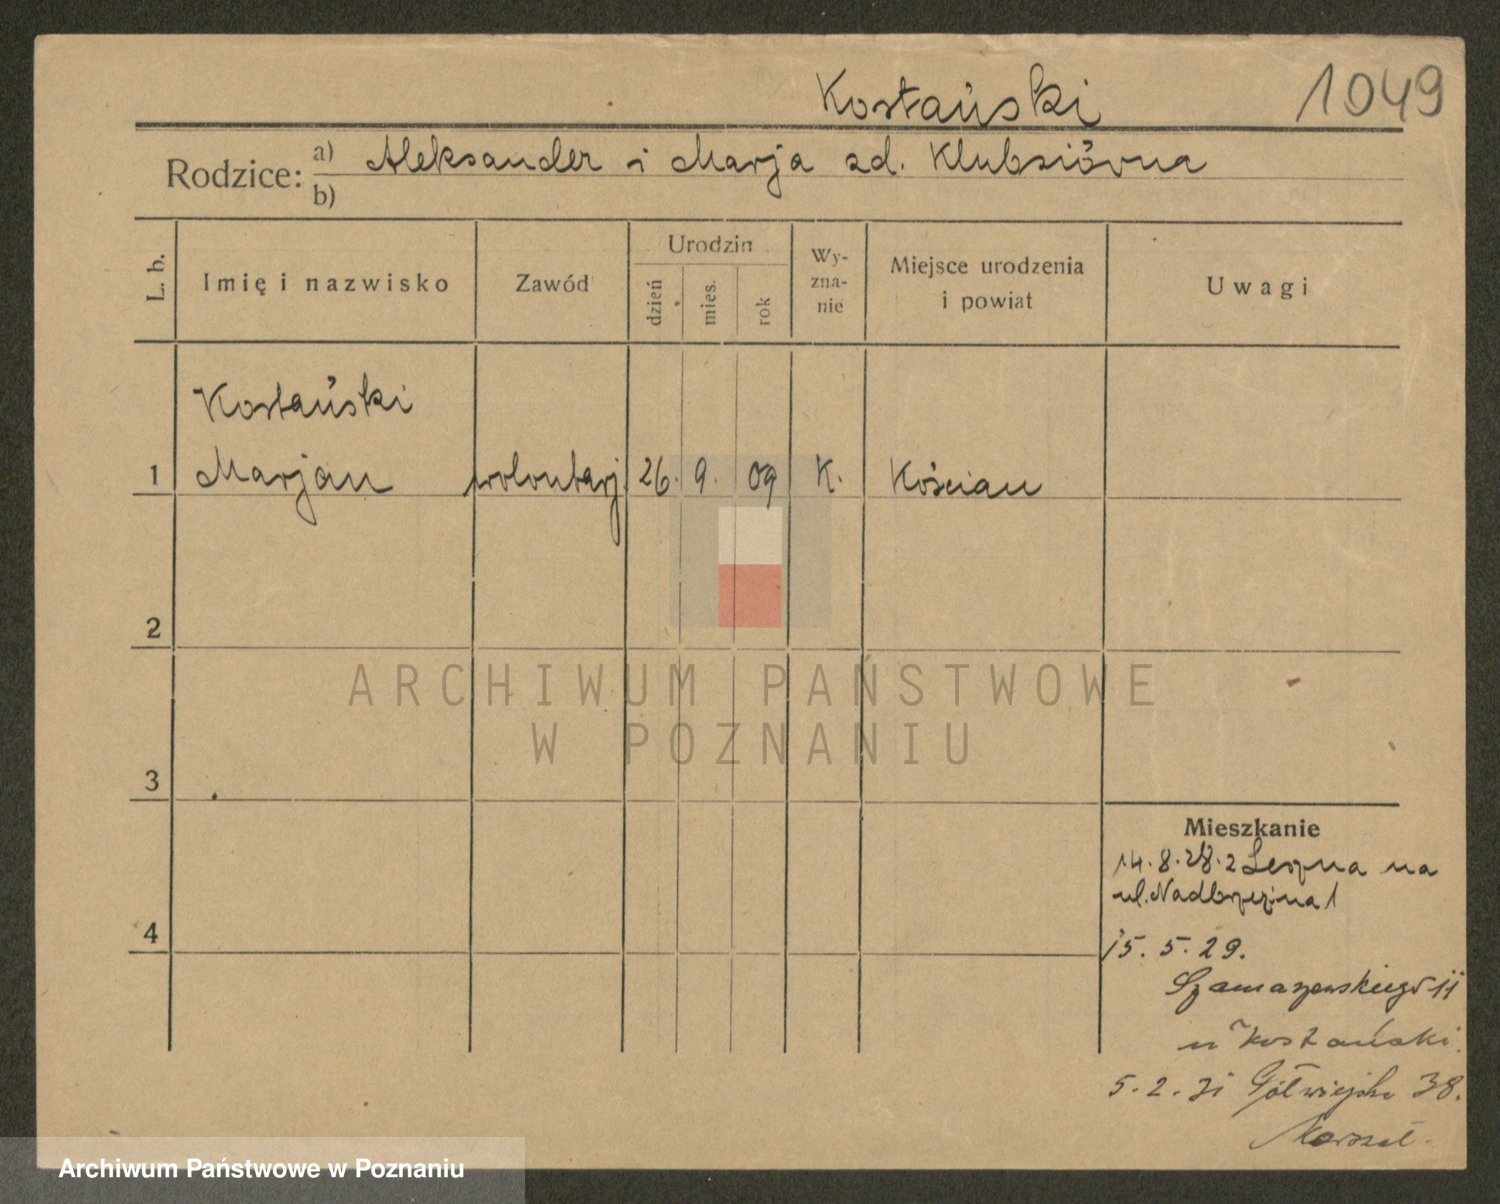 Kostański
1049
Rodzice: a) Aleksander i Marja zd. Klubsiówna
b)
L. b.
Imię i nazwisko
Zawód
Urodzin
dzień
mies.
rok
Wy-
zna-
nie
Miejsce urodzenia
i powiat
Uwagi
Kostański
1 Marjan wolontarj 26. 9. 09 K. Kościan
2
ARCHIWUM PAŃSTWOWE
W POZNANIU
3
Mieszkanie
14.8.28. z Leszna na
ul. Nadbrzeżna 1
4
15. 5. 29.
Szamarzewskiego 11
u Kostański.
5. 2. 31 Półwiejska 38.
Archiwum Państwowe w Poznaniu